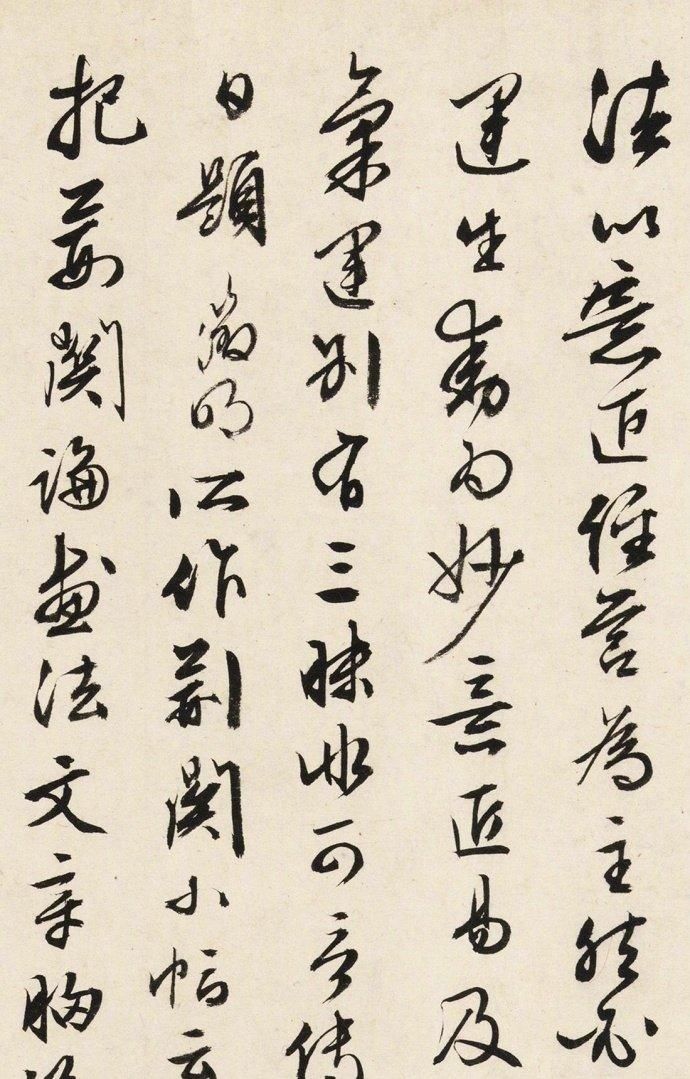 法以意匠經營為主然必
運生動為妙意匠易及
氣運別有三昧非可言傳
日題徵明所作荊關小幅云
把荊關論畫法文章胸